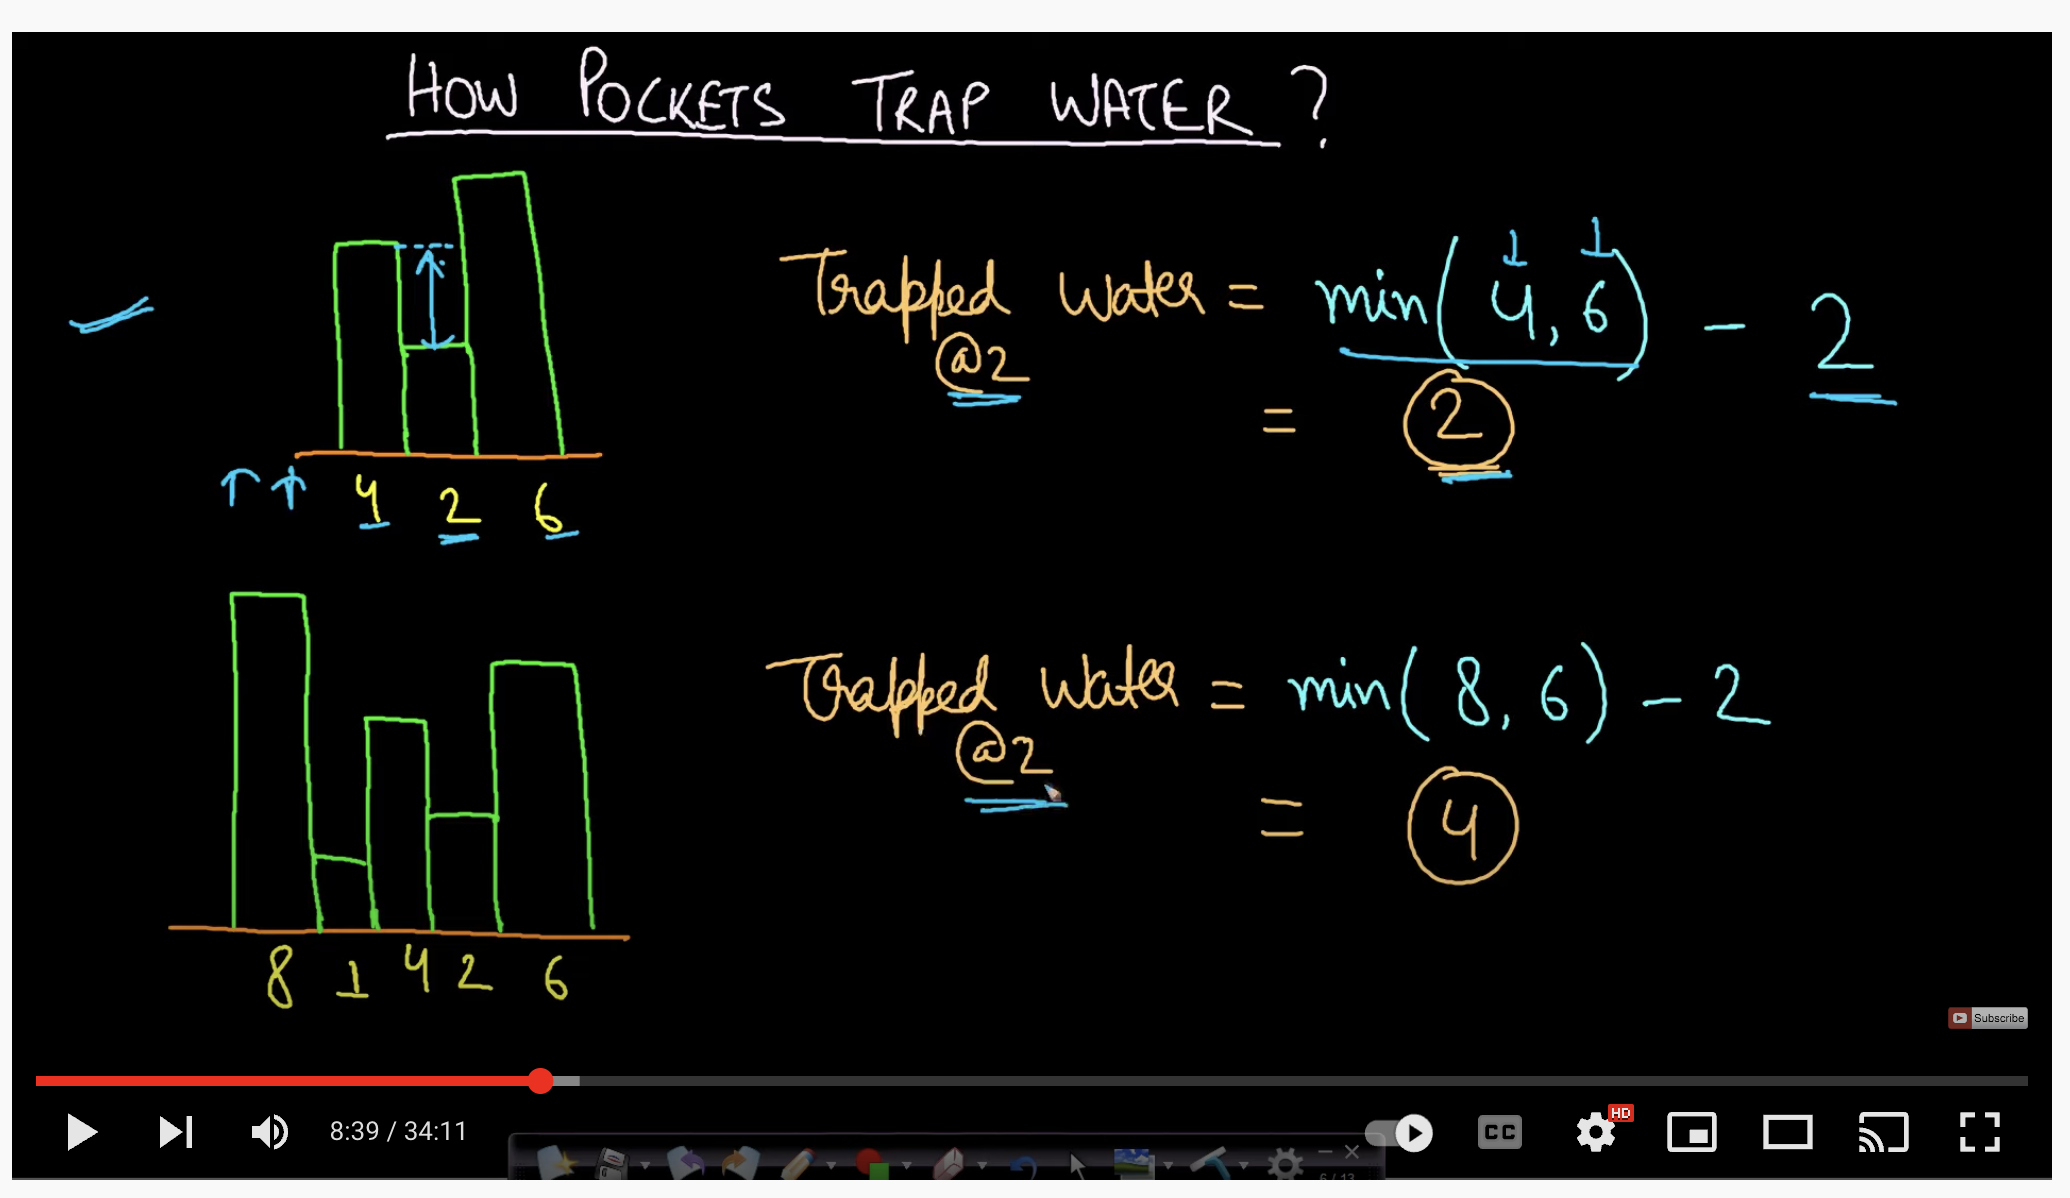 HOW POCKETS TRAP WATER ?
Trapped water = min(4, 6) - 2
@2
= 2
4 2 6
Trapped water = min(8, 6) - 2
@2
= 4
8 1 4 2 6
Subscribe
8:39 / 34:11
CC
HD
6 / 13